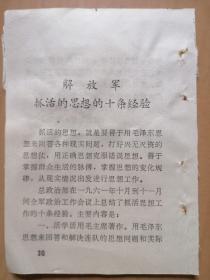 解放军
抓活的思想的十条经验
抓活的思想，就是要善于用毛泽东思
想来回答各种现实问题，打好兴无灭资的
思想仗，用正确思想克服错误思想。善于
掌握群众生活的脉搏，掌握思想的变化规
律，从现实情况出发进行思想工作。
总政治部在一九六一年十月到十一月
间全军政治工作会议上总结了抓活思想工
作的十条经验。主要内容是：
一、活学活用毛主席著作。用毛泽东
思想来回答和解决连队的思想问题和实际
36